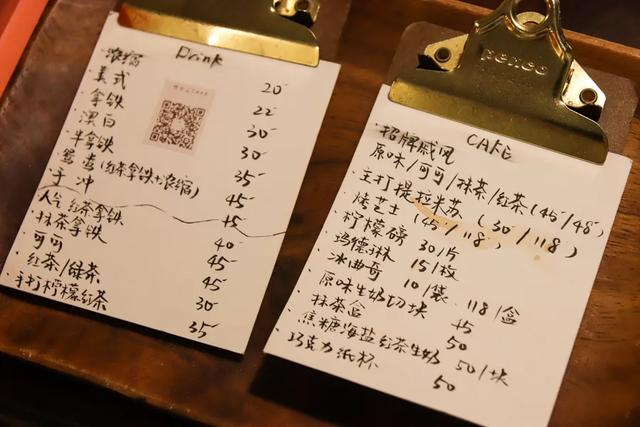 Drink
·浓缩 20
·美式 22
·拿铁 30
·澳白 30
·牛拿铁 35
·鸳鸯(红茶拿铁+浓缩) 45
·手冲 45
·人气红茶拿铁 40
·抹茶拿铁 45
·可可 45
·红茶/绿茶 30
·手打柠檬红茶 35
penco
CAFE
·招牌戚风
原味/可可/抹茶/红茶(45/48)
·主打提拉米苏 (30/118)
·烤芝士 (45/118)
·柠檬磅 30/片
·玛德琳 15/枚
·冰曲奇 10/袋 118/盒
·原味生奶切块 45
·抹茶盒 50
·焦糖海盐红茶生奶 50/块
·巧克力纸杯 50